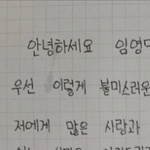 안녕하세요 임영
우선 이렇게 불미스러운
저에게 많은 사랑과